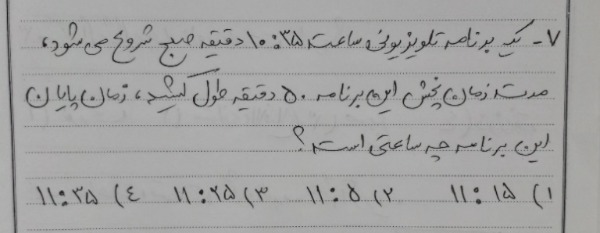 ۷- یک برنامه تلویزیونی ساعت ۱۰:۳۵ دقیقه صبح شروع می شود،
مدت زمان پخش این برنامه ۵۰ دقیقه طول کشید، زمان پایان
این برنامه چه ساعتی است؟
۱) ۱۱:۱۵ ۲) ۱۱:۵ ۳) ۱۱:۲۵ ۴) ۱۱:۳۵